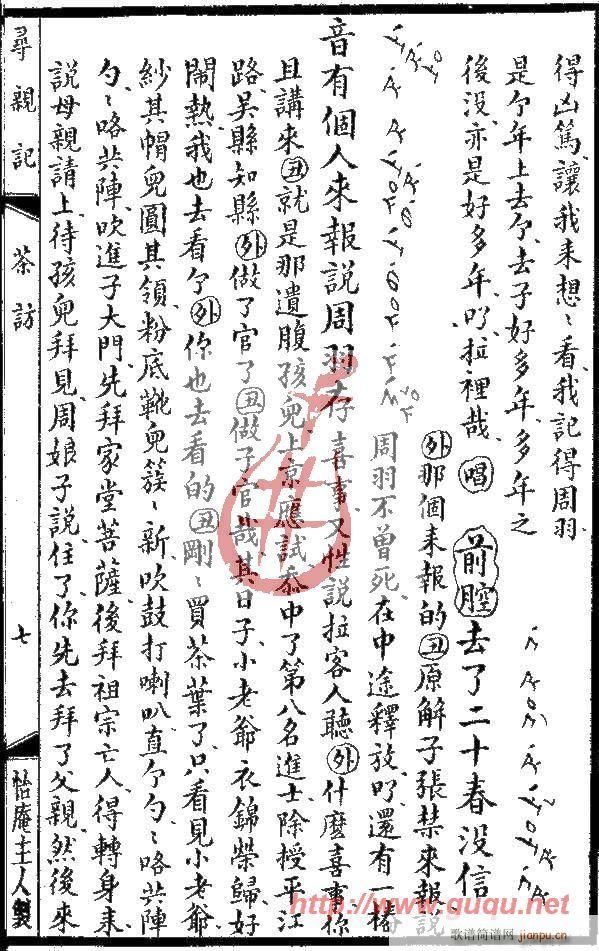 得凶篤讓我來想〻看我記得周羽
是個年上去個去子好多年多年之
後没亦是好多年了拉裡哉 唱 前腔 去了二十春没信
外 那個來報的 丑 原解子張禁來報說
周羽不曾死在中途釋放了還有一樁
音有個人來報說周羽存 喜事又性說拉客人聽 外 什麽喜事你
且講來 丑 就是那遺腹孩兒上京應試忝中了第八名進士除授平江
路吳縣知縣 外 做了官了 丑 做子官哉其日子小老爺衣錦榮歸好
鬧熱我也去看個 外 你也去看的 丑 剛〻買茶葉了只看見小老爺
紗其帽兒圓其領粉底靴兒簇〻新吹鼓打喇叭直個勺〻咯共陣
勺〻咯共陣吹進子大門先拜家堂菩薩後拜祖宗亡人得轉身來
說母親請上待孩兒拜見周娘子說住了你先去拜了父親然後來
尋親記
茶訪
七
怡庵主人製
http://www.guqu.net
歌谱简谱网
jianpu.cn